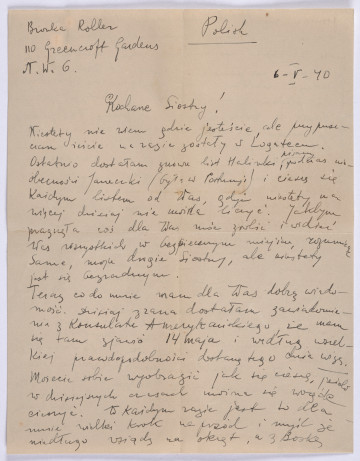 Bronka Roller
110 Greencroft Gardens
N.W. 6.
Polish
6-V-40
Kochane Siostry!
Niestety nie wiem gdzie jesteście, ale przypusz-
czam iście na razie zostały w
Ostatnio dostałam znowu list Halinki, pisany podczas nie-
obecności Janeczki i cieszę się
Każdym listem od Was, gdyż niestety na
więcej dzisiaj nie można liczyć. Jakbym
pragnęła coś dla Was móc zrobić i widzieć
Was wszystkich w bezpiecznym miejscu, rozumiecie
same, moje drogie Siostry, ale niestety
jest się bezradnym.
Teraz co do mnie mam dla Was dobrą wiado-
mość. Dzisiaj z rana dostałam zawiadomie-
nie z Konsulatu Amerykańskiego, że mam
się tam zjawić 14 maja i według wszel-
kiej prawdopodobności dostanę tego dnia wizę.
Możecie sobie wyobrazić jak się cieszę, jeżeli
w dzisiejszych czasach można się wogóle
cieszyć. W każdym razie jest to dla
mnie wielki krok naprzód i myślę że
niedługo wsiądę na okręt, a z Boską